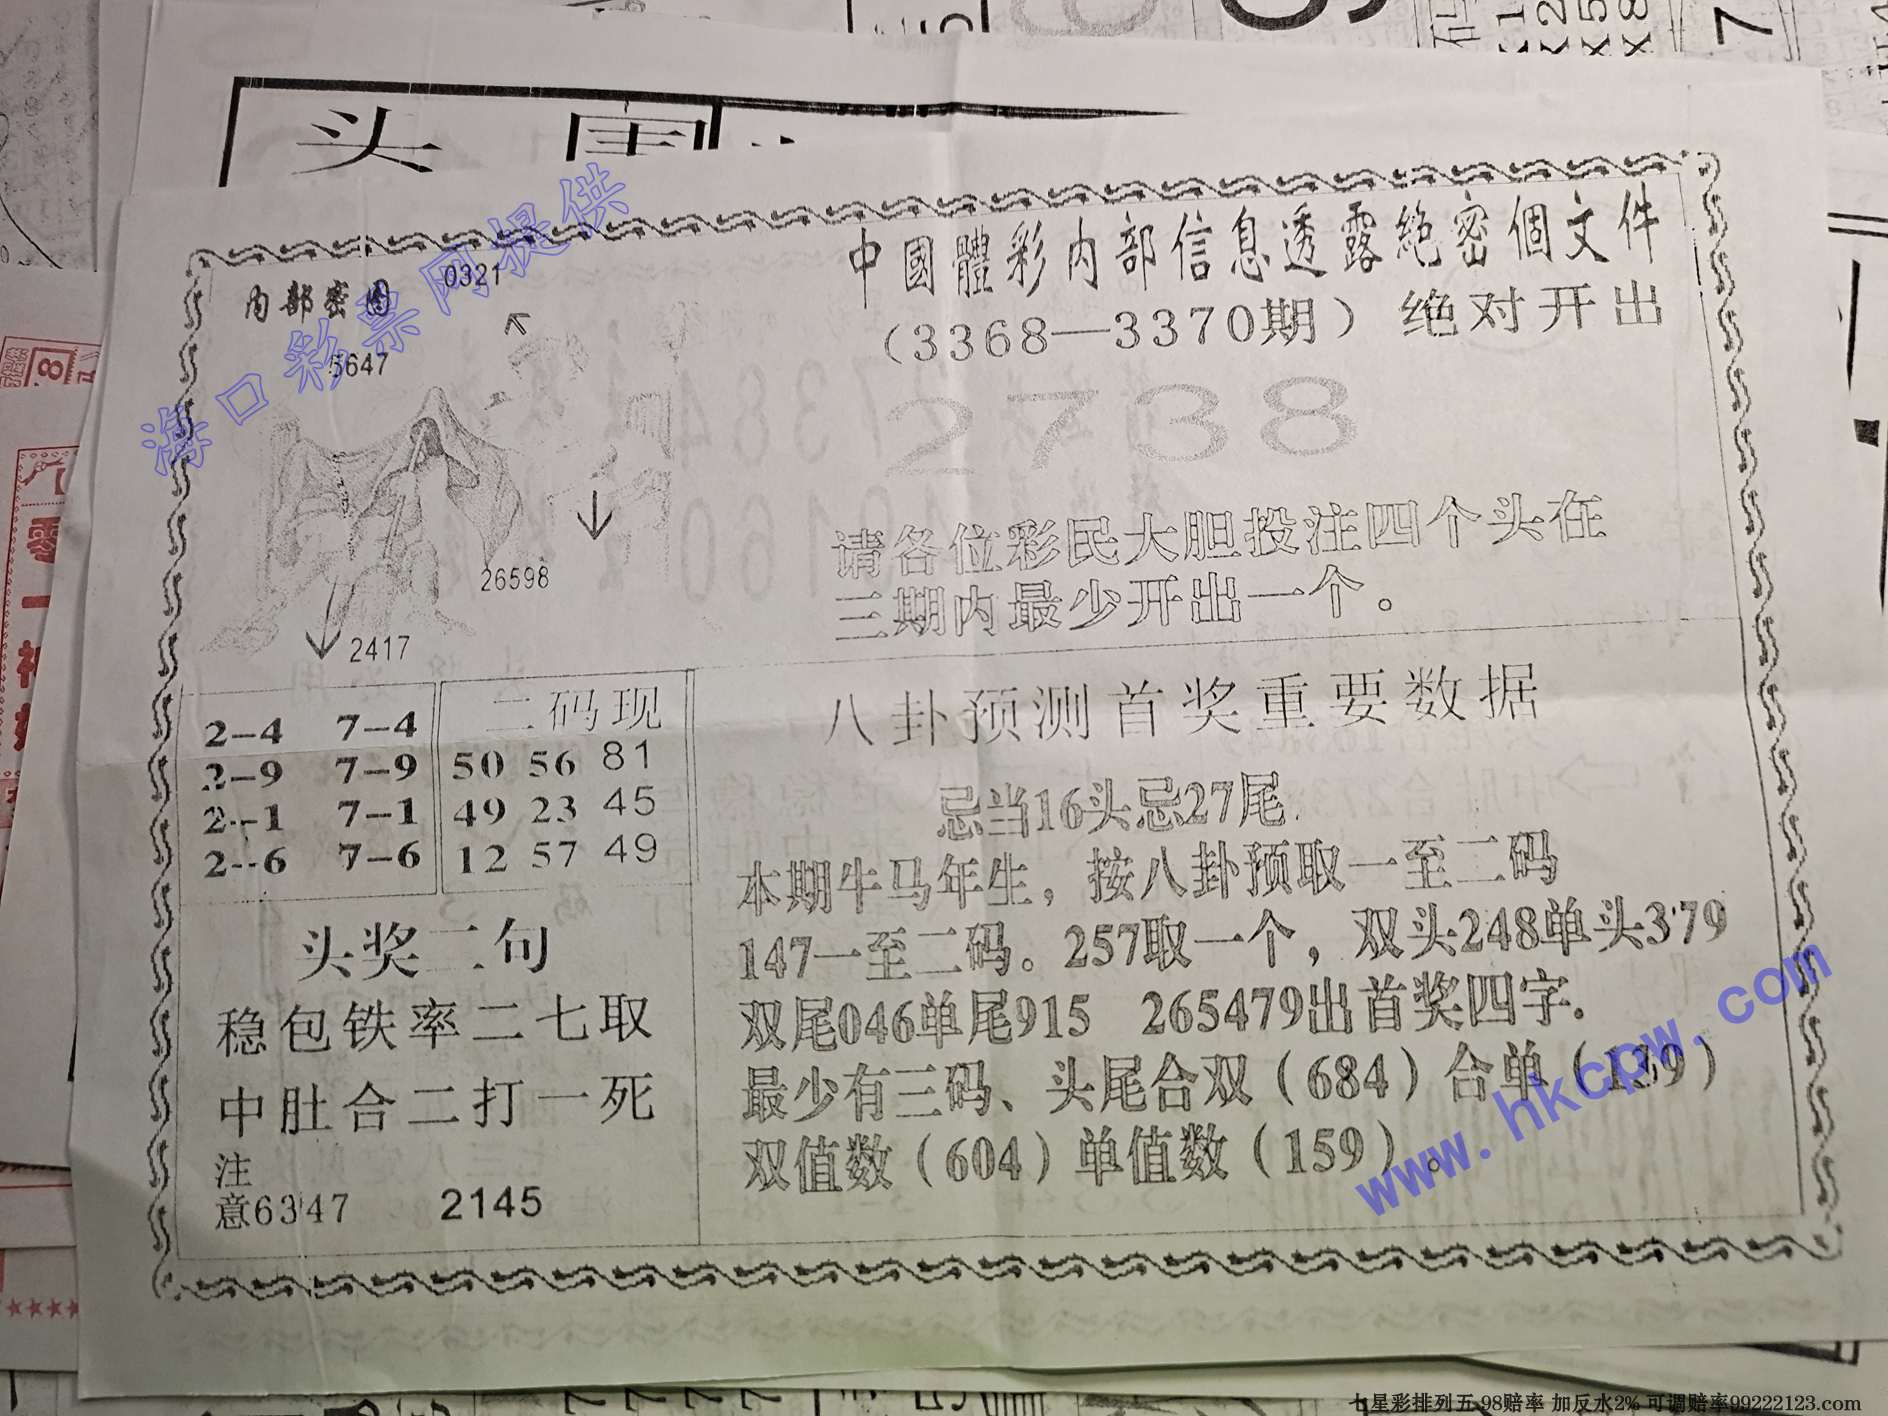 头
中國體彩内部信息透露絕密個文件
（3368—3370期）绝对开出
2738
请各位彩民大胆投注四个头在
三期内最少开出一个。
内部密图
0321
5647
26598
2417
2–4 7–4
2–9 7–9
2--1 7–1
2--6 7–6
二码现
50 56 81
49 23 45
12 57 49
头奖二句
稳包铁率二七取
中肚合二打一死
注
意6347 2145
八卦预测首奖重要数据
忌当16头忌27尾.
本期牛马年生，按八卦预取一至二码
147一至二码。257取一个，双头248单头379
双尾046单尾915 265479出首奖四字.
最少有三码、头尾合双（684）合单（139）
双值数（604）单值数（159）。
海口彩票网提供
www.hkcpw.com
七星彩排列五 98赔率 加反水2% 可调赔率99222123.com